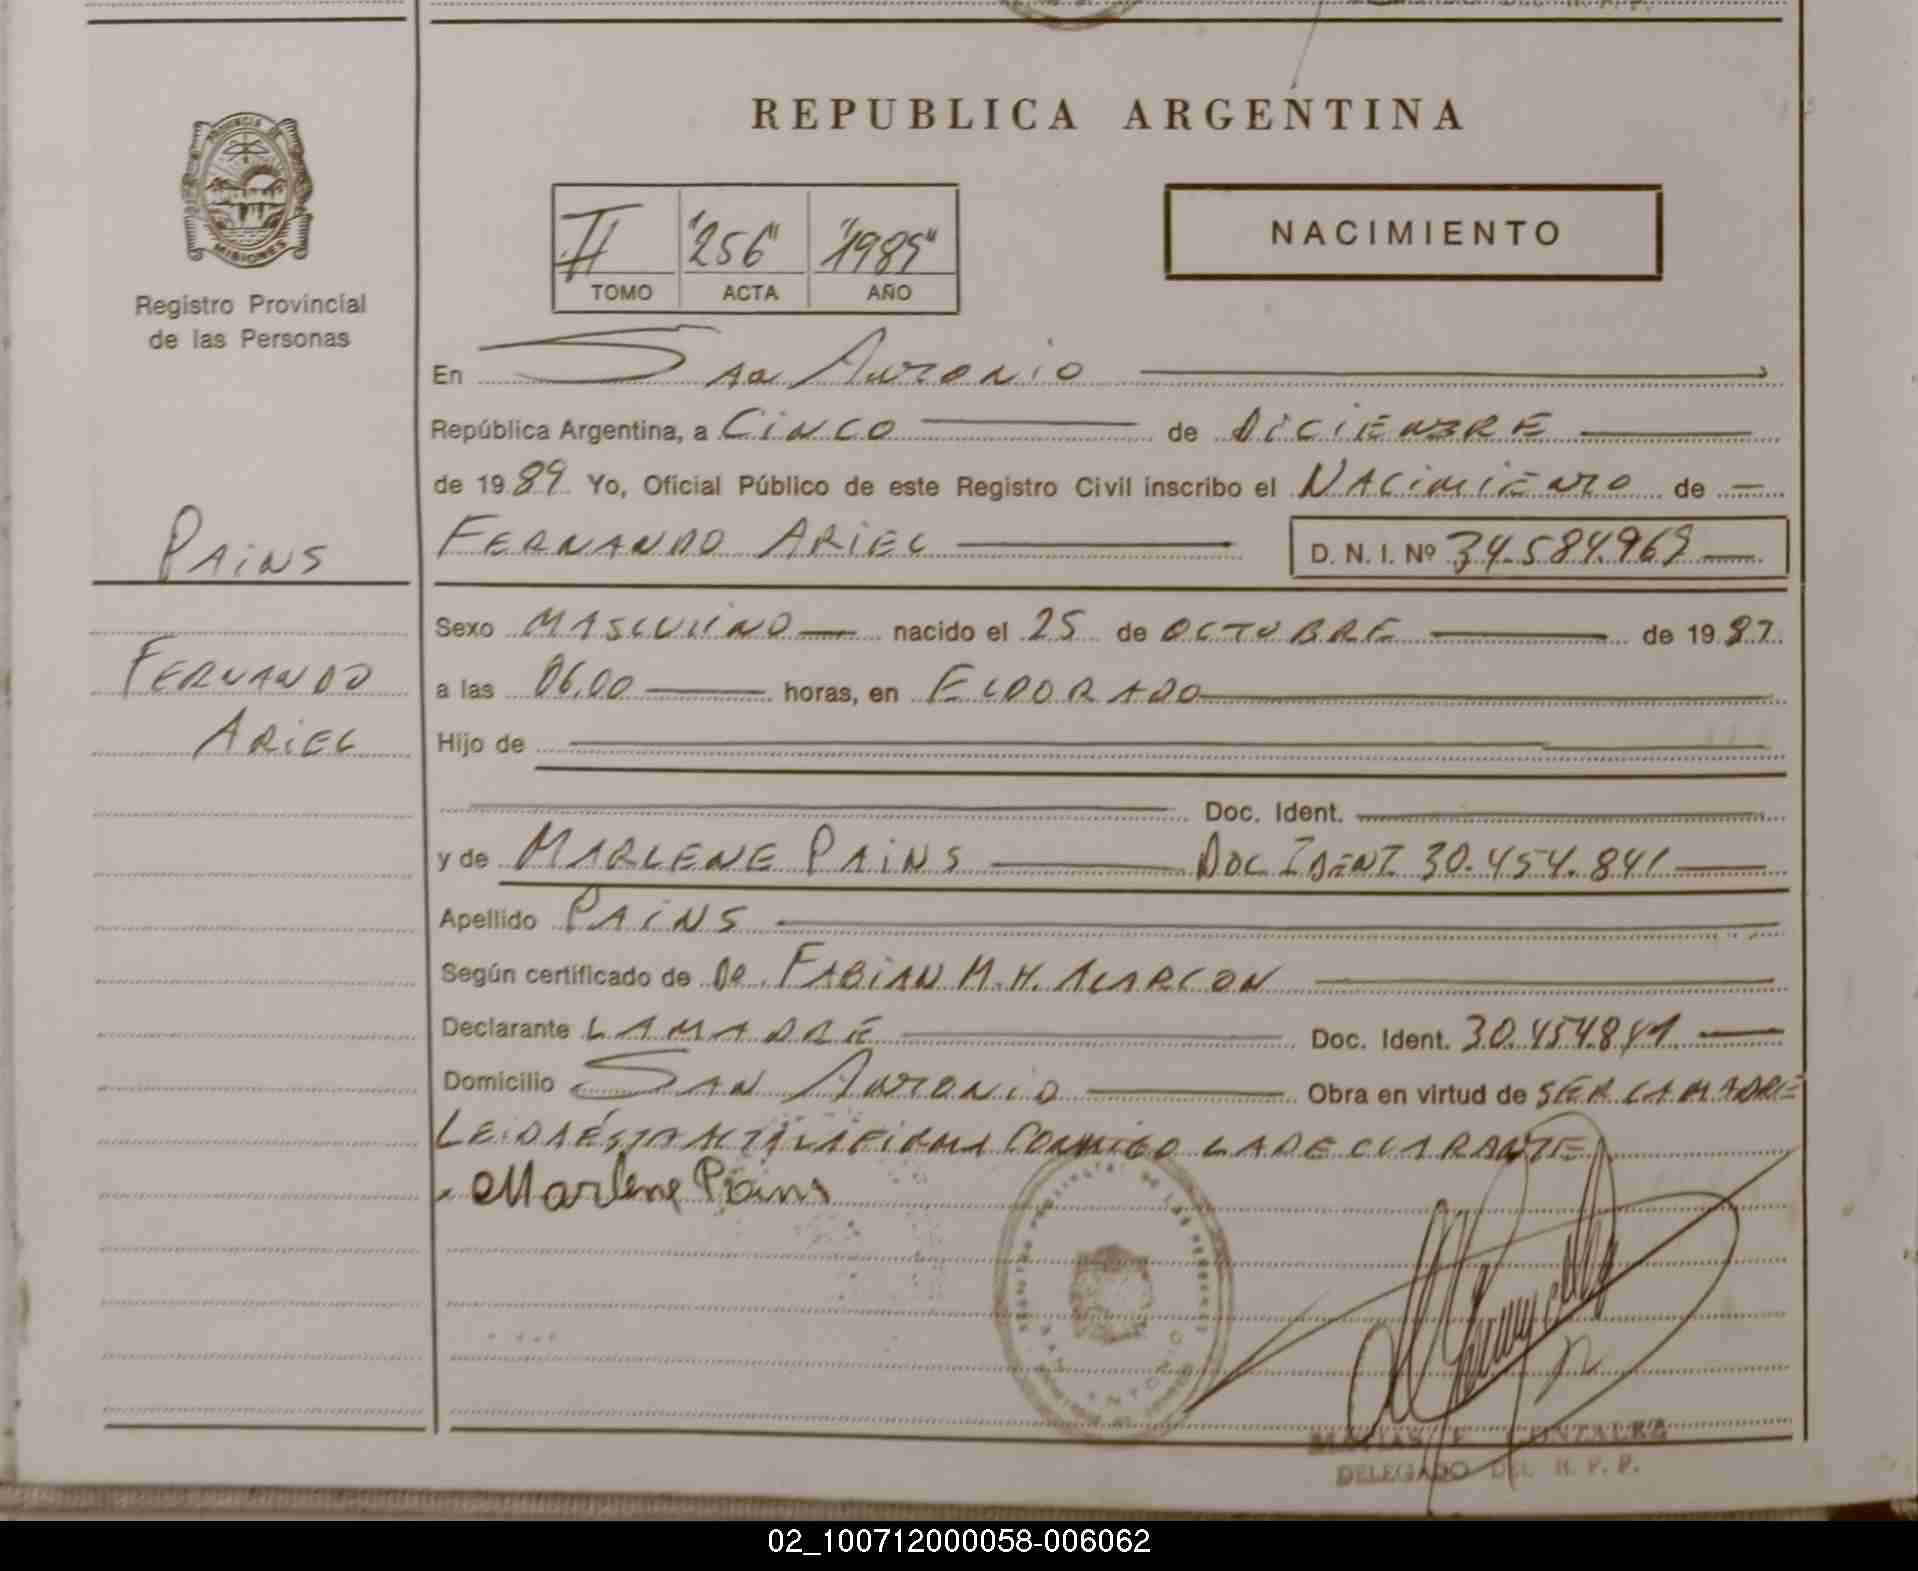 REPUBLICA ARGENTINA
PROVINCIA DE
MISIONES
Registro Provincial
de las Personas
II "256" "1989"
TOMO ACTA AÑO
NACIMIENTO
En San Antonio
República Argentina, a Cinco de Diciembre
de 1989 Yo, Oficial Público de este Registro Civil inscribo el Nacimiento de
PAiNS
FERNANDO ARiEL D. N. I. Nº 34.584.969
FERNANDO
ARiEL
Sexo MASCULiNO nacido el 25 de OCTUBRE de 1987
a las 06.00 horas, en ELDORADO
Hijo de
Doc. Ident.
y de MARLENE PAiNS DOC IDENT 30.454.841
Apellido PAiNS
Según certificado de DR. FABiAN M.H. ALARCON
Declarante LA MADRE Doc. Ident. 30.454.841
Domicilio SAN ANTONiO Obra en virtud de SER LA MADRE
LEiDA ÉSTA ACTA LA FiRMA CONMiGO LA DECLARANTE
Marlene Pains
SAN ANTONIO
MATIAS F. GONZALEZ
DELEGADO DEL R. P. P.
02_100712000058-006062